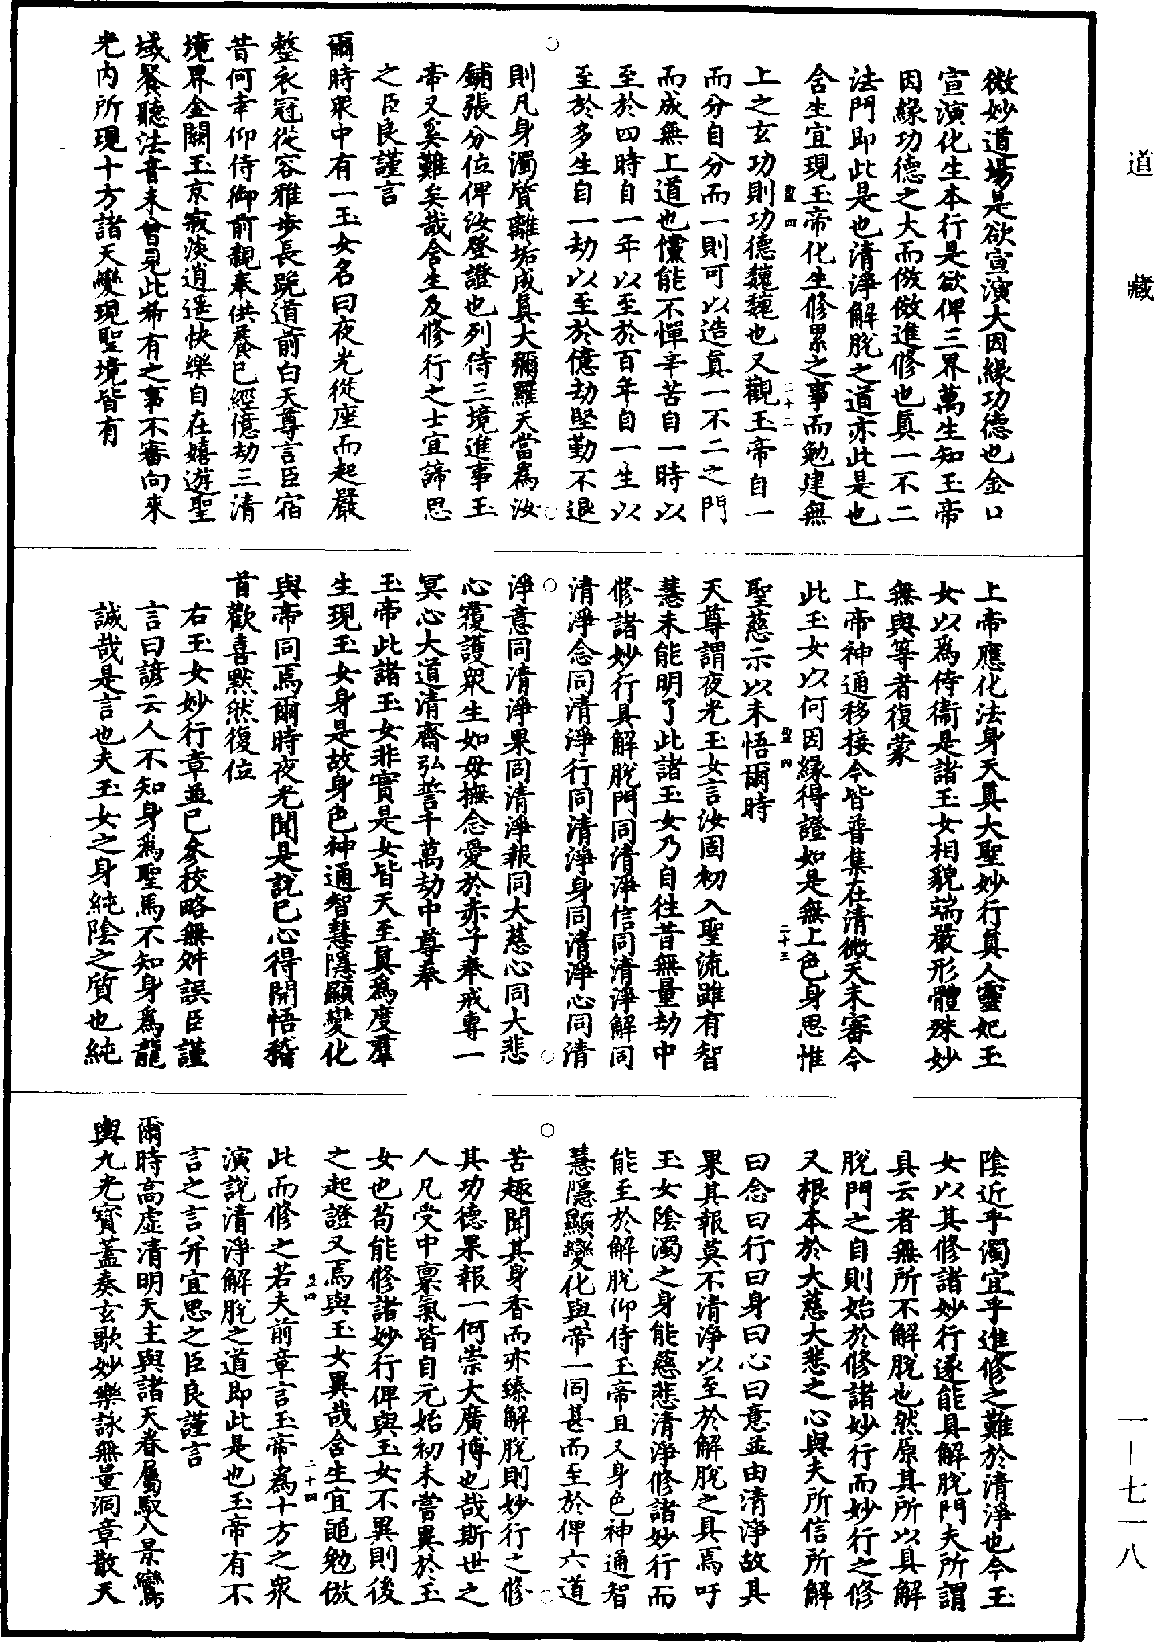 道藏
微妙道場是欲宣演大因緣功德也金口
宣演化生本行是欲俾三界萬生知玉帝
因緣功德之大而倣傚進修也真一不二
法門即此是也清淨解脫之道亦此是也
含生宜現玉帝化生修累之事而勉建無
聖四
二十二
上之玄功則功德巍巍也又觀玉帝自一
而分自分而一則可以造真一不二之門
而成無上道也儻能不憚辛苦自一時以
至於四時自一年以至於百年自一生以
至於多生自一劫以至於億劫堅勤不退
則凡身濁質離垢成真大彌羅天當為汝
鋪張分位俾汝登證也列侍三境進事玉
帝又奚難矣哉含生及修行之士宜諦思
之臣良謹言
爾時眾中有一玉女名曰夜光從座而起嚴
整衣冠從容雅步長跪道前白天尊言臣宿
昔何幸仰侍御前觀奉供養已經億劫三清
境界金闕玉京寂淡逍遙快樂自在嬉遊聖
域餐聽法音未曾見此希有之事不審向來
光內所現十方諸天變現聖境皆有
上帝應化法身天真大聖妙行真人靈妃玉
女以為侍衛是諸玉女相貌端嚴形體殊妙
無與等者復蒙
上帝神通移接今皆普集在清微天未審今
此玉女以何因緣得證如是無上色身思惟
聖四
二十三
聖慈示以未悟爾時
天尊謂夜光玉女言汝固初入聖流雖有智
慧未能明了此諸玉女乃自往昔無量劫中
修諸妙行具解脫門同清淨信同清淨解同
清淨念同清淨行同清淨身同清淨心同清
淨意同清淨果同清淨報同大慈心同大悲
心覆護眾生如母撫念愛於赤子奉戒專一
冥心大道清齋弘誓千萬劫中尊奉
玉帝此諸玉女非實是女皆天至真為度羣
生現玉女身是故身色神通智慧隱顯變化
與帝同焉爾時夜光聞是說已心得開悟稽
首歡喜默然復位
右玉女妙行章並已參校略無舛誤臣謹
言曰諺云人不知身為聖馬不知身為龍
誠哉是言也夫玉女之身純陰之質也純
陰近乎濁宜乎進修之難於清淨也今玉
女以其修諸妙行遂能具解脫門夫所謂
具云者無所不解脫也然原其所以具解
脫門之自則始於修諸妙行而妙行之修
又根本於大慈大悲之心與夫所信所解
曰念曰行曰身曰心曰意並由清淨故其
果其報莫不清淨以至於解脫之具焉吁
玉女陰濁之身能慈悲清淨修諸妙行而
能至於解脫仰侍玉帝且又身色神通智
慧隱顯變化與帝一同甚而至於俾六道
苦趣聞其身香而亦臻解脫則妙行之修
其功德果報一何崇大廣博也哉斯世之
人凡受中稟氣皆自元始初未嘗異於玉
女也苟能修諸妙行俾與玉女不異則後
之起證又焉與玉女異哉含生宜黽勉倣
聖四
二十四
此而修之若夫前章言玉帝為十方之眾
演說清淨解脫之道即此是也玉帝有不
言之言并宜思之臣良謹言
爾時高虛清明天主與諸天眷屬馭八景鸞
輿九光寶蓋奏玄歌妙樂詠無量洞章散天
一—七一八